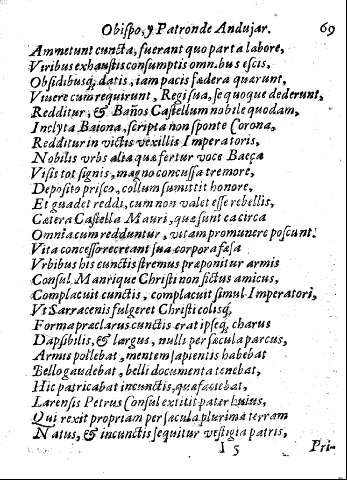 Obispo, y Patron de Andujar. 69
Ammetunt cuncta, fuerant quo parta labore,
Viribus exhaustis consumptis omnibus escis,
Obsidibusq; datis, iam pacis fædera quærunt,
Viuere cum requirunt, Regi sua, se quoque dederunt,
Redditur, & Baños Castellum nobile quodam,
Inclyta Baiona, scripta non sponte Corona,
Redditur in victis vexillis Imperatoris,
Nobilis vrbs alia quæ fertur voce Baeça
Visis tot signis, magno concussa tremore,
Deposito prisco, collum sumittit honore,
Et gaudet reddi, cum non valet esse rebellis,
Cætera Castella Mauri, quæ sunt ea circa
Omnia cum redduntur, vitam promunere poscunt.
Vita concessor recreant sua corpora fæsa
Vrbibus his cunctis stremus præponitur armis
Consul Manrique Christi non fictus amicus,
Complacuit cunctis, complacuit simul Imperatori,
Vt Sarracenis fulgeret Christicolisq;
Forma præclarus cunctis erat ipseq; charus
Dapsibilis, & largus, nulli per sæcula parcus,
Armis pollebat, mentem sapientis habebat
Bello gaudebat, belli documenta tenebat,
Hic patricabat in cunctis, quæ faciebat,
Larensis Petrus Consul extitit pater huius,
Qui rexit propriam per sæcula plurima terram
Natus, & in cunctis sequitur vestigia patris,
I 5 Pri-